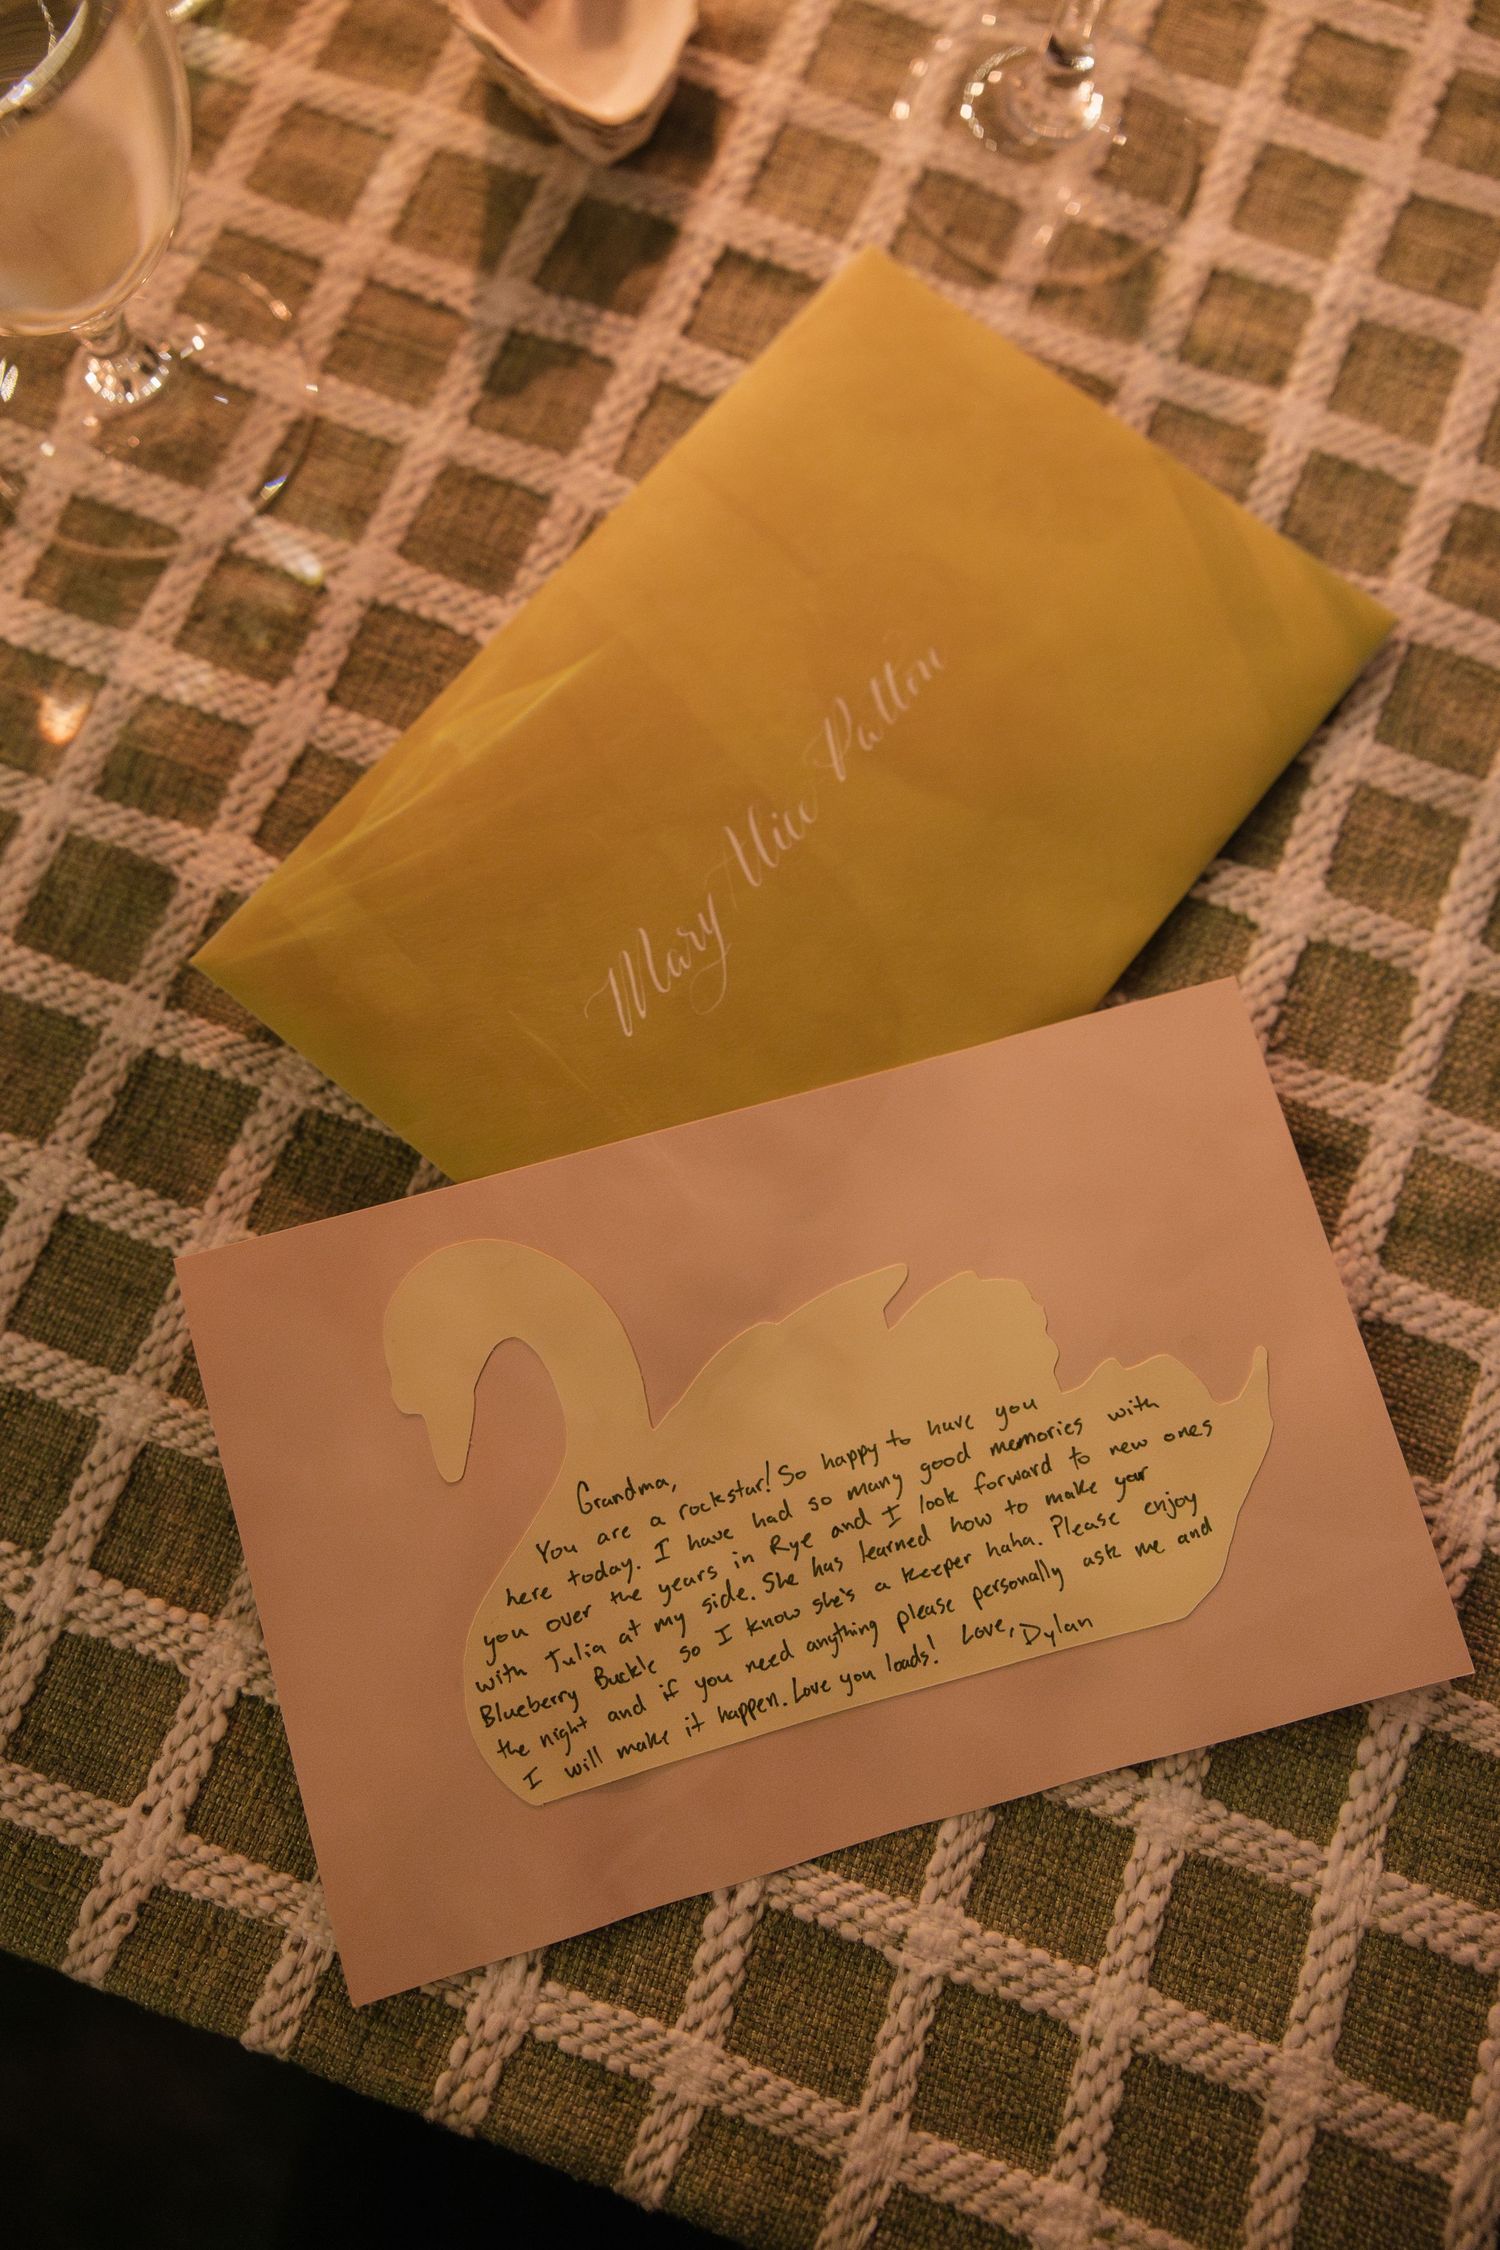 Mary Alice Patton
Grandma,
You are a rockstar! So happy to have you
here today. I have had so many good memories with
you over the years in Rye and I look forward to new ones
with Julia at my side. She has learned how to make your
Blueberry Buckle so I know she's a keeper haha. Please enjoy
the night and if you need anything please personally ask me and
I will make it happen. Love you loads! Love, Dylan